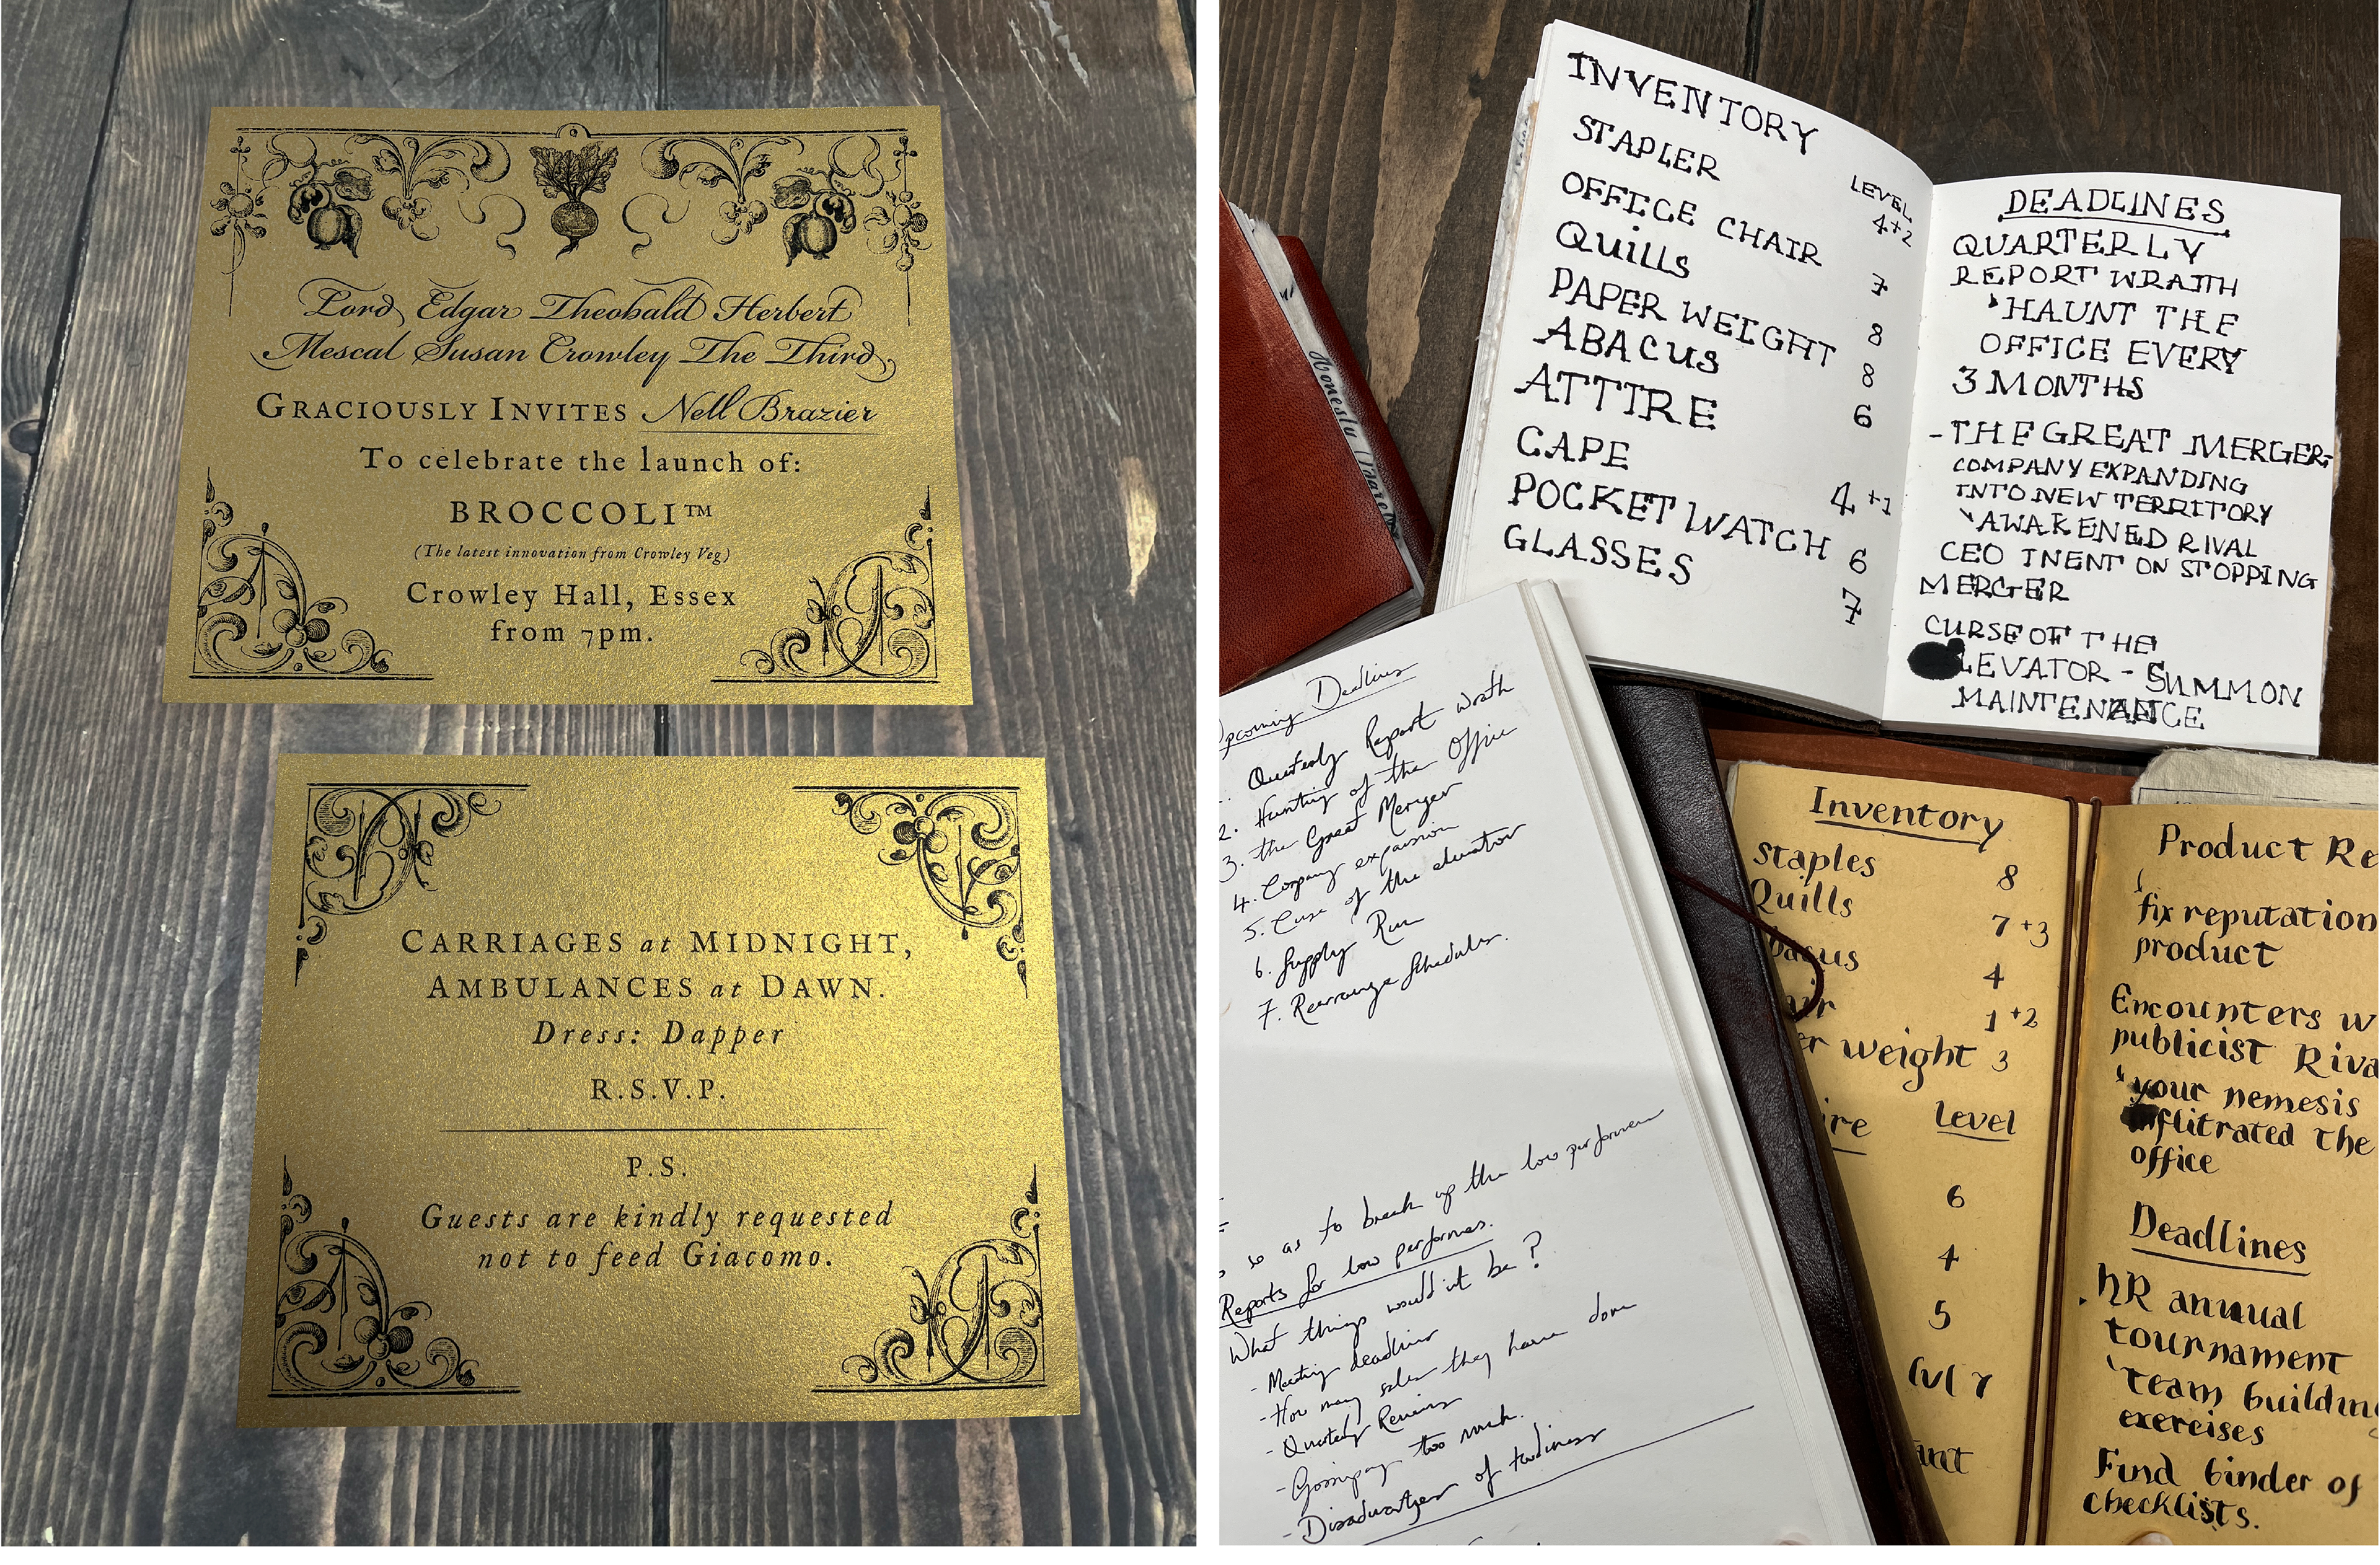 Lord Edgar Theobald Herbert
Mescal Susan Crowley The Third
GRACIOUSLY INVITES Nell Brazier
To celebrate the launch of:
BROCCOLI™
(The latest innovation from Crowley Veg)
Crowley Hall, Essex
from 7pm.
CARRIAGES at MIDNIGHT,
AMBULANCES at DAWN.
Dress: Dapper
R.S.V.P.
P.S.
Guests are kindly requested
not to feed Giacomo.
INVENTORY
LEVEL
STAPLER 4+2
OFFICE CHAIR 7
Quills 8
PAPER WEIGHT 8
ABACUS 6
ATTIRE
CAPE 4+1
POCKET WATCH 6
GLASSES 7
DEADLINES
QUARTERLY
REPORT WRAITH
HAUNT THE
OFFICE EVERY
3 MONTHS
-THE GREAT MERGER-
COMPANY EXPANDING
INTO NEW TERRITORY
AWAKENED RIVAL
CEO INENT ON STOPPING
MERGER
CURSE OF THE
LEVATOR - SUMMON
MAINTENANCE
Honestly
pcoming Deadlines
Quarterly Report wrath
2. Hunting of the Office
3. the Great Merger
4. Company expansion
5. Curse of the elevator
6. Supply Run
7. Rearrange Schedules.
so as to break up the low performers
Reports for low performers.
What things would it be?
- Meeting deadlines
- How many sales they have done
- Quarterly Reviews
- Gossiping too much.
- Disadvantages of tardiness
Inventory
Staples 8
Quills 7+3
bacus 4
air 1+2
er weight 3
ire Level
6
4
5
lvl 7
ant
Product Re
fix reputation
product
Encounters w
publicist Riva
your nemesis
flitrated the
office
Deadlines
HR annual
tournament
team building
exercises
Find binder of
checklists.